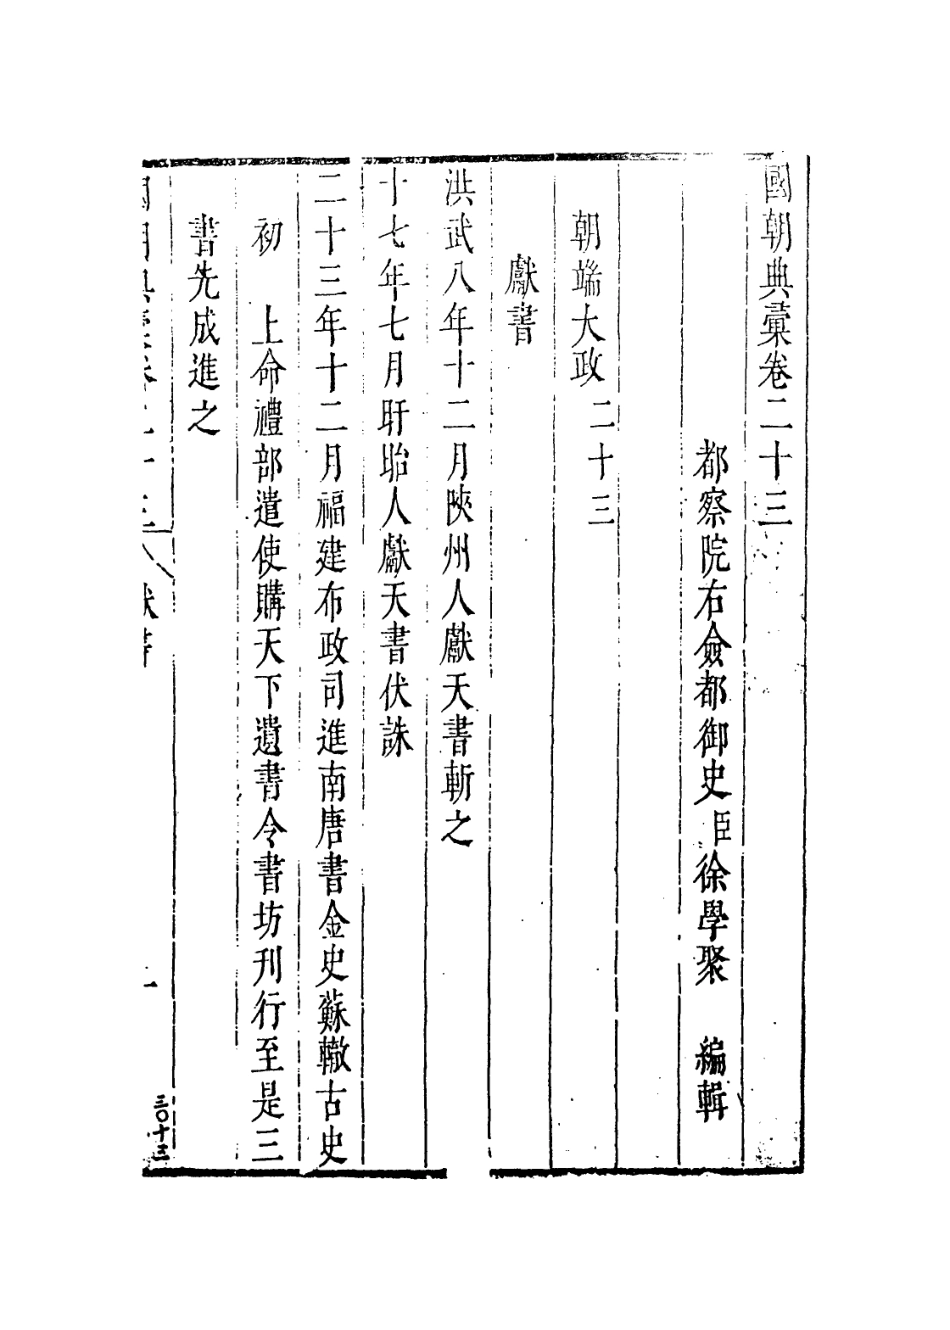 國朝典彙卷二十三
都察院右僉都御史臣徐學聚　編輯
朝端大政二十三
獻書
洪武八年十二月陝州人獻天書斬之
十七年七月盱眙人獻天書伏誅
二十三年十二月福建布政司進南唐書金史蘇轍古史
初　上命禮部遣使購天下遺書令書坊刊行至是三
書先成進之
國朝典彙卷二十三　獻書　一
三〇十三